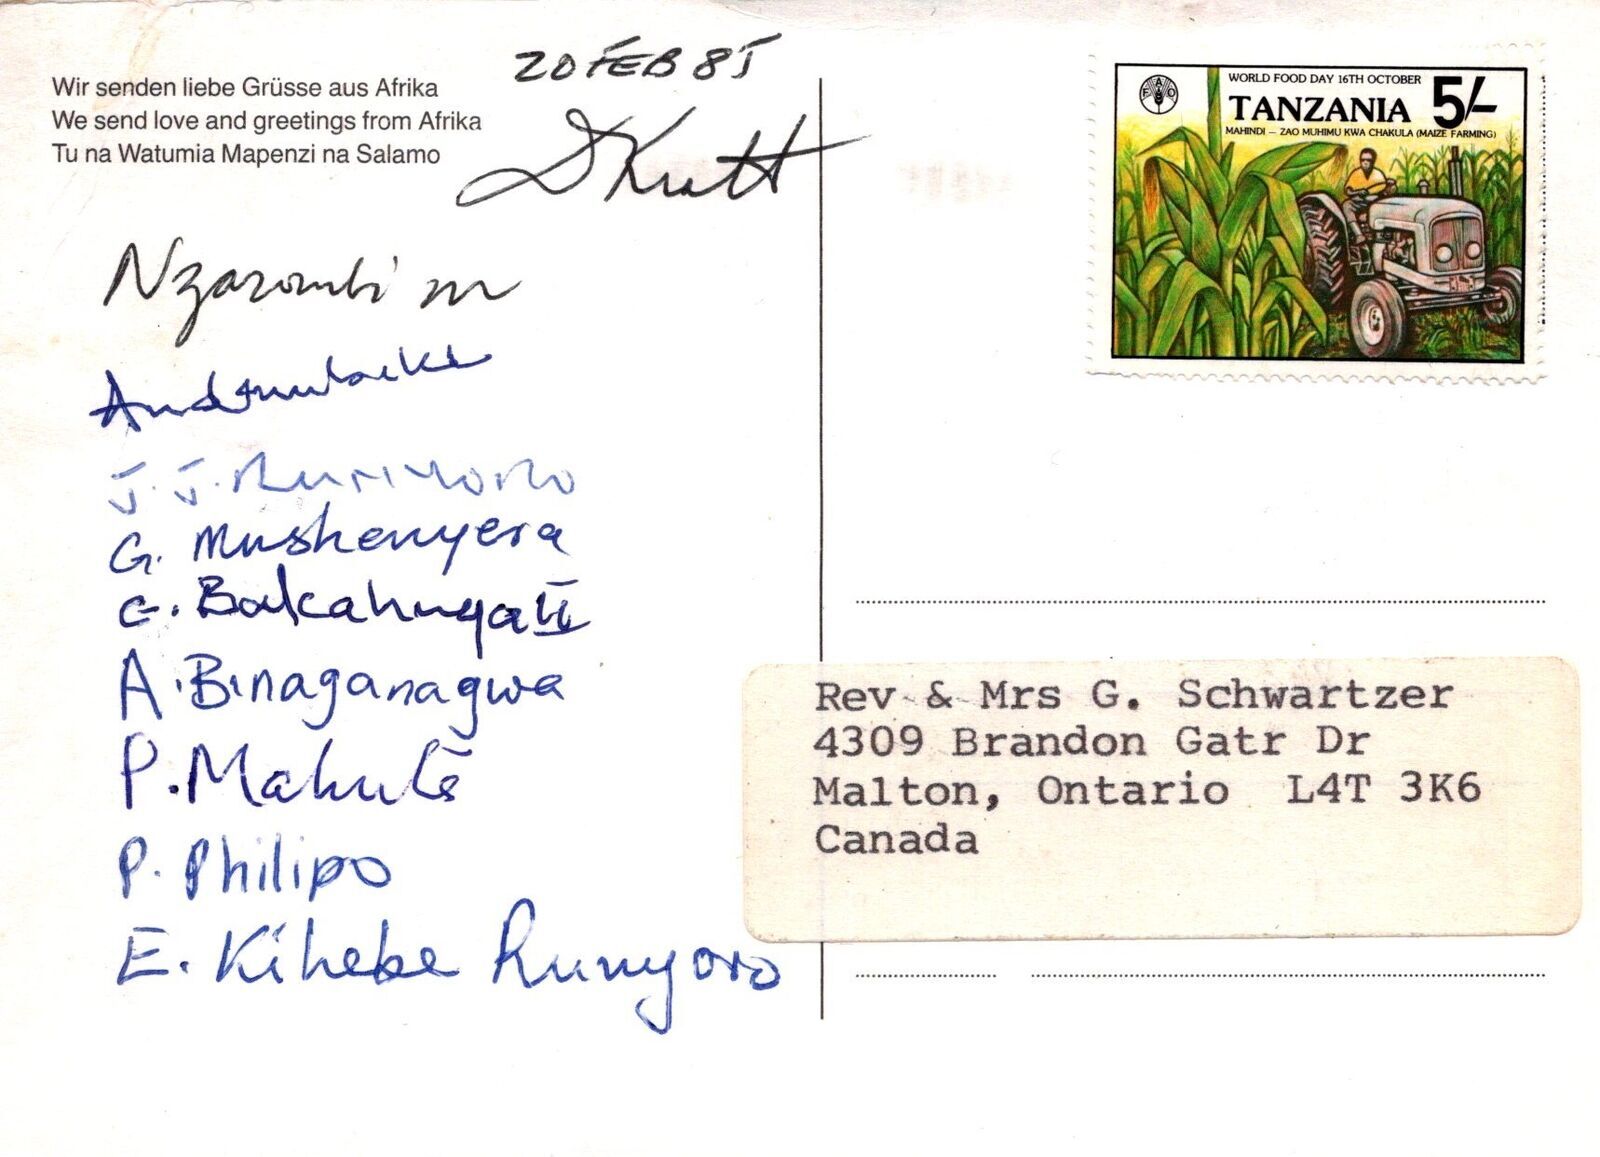 Wir senden liebe Grüsse aus Afrika
We send love and greetings from Afrika
Tu na Watumia Mapenzi na Salamo
20 FEB 85
WORLD FOOD DAY 16TH OCTOBER
TANZANIA 5/-
MAHINDI – ZAO MUHIMU KWA CHAKULA (MAIZE FARMING)
FAO
G. Mushenyera
Bakahuga
A. Binaganagwa
P.
P. Philipo
E. Kihebe Runyoro
Rev & Mrs G. Schwartzer
4309 Brandon Gatr Dr
Malton, Ontario L4T 3K6
Canada